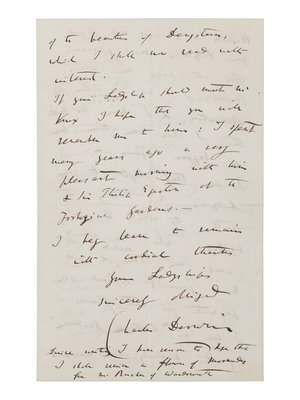 of the beauties of Devonshire,
which I shall now read with
interest.
If your Ladyship should meet Mr
Knox I hope that you will
remember me to him: I spent
many years ago a very
pleasant morning with him
& Sir Philip Egerton at the
Zoological Gardens.—
I beg leave to remain
with cordial thanks
Your Ladyship's
sincerely obliged
Charles Darwin
Since writing I have reason to hope that
I shall receive a flower of
from Mr Rucker of Wandsworth